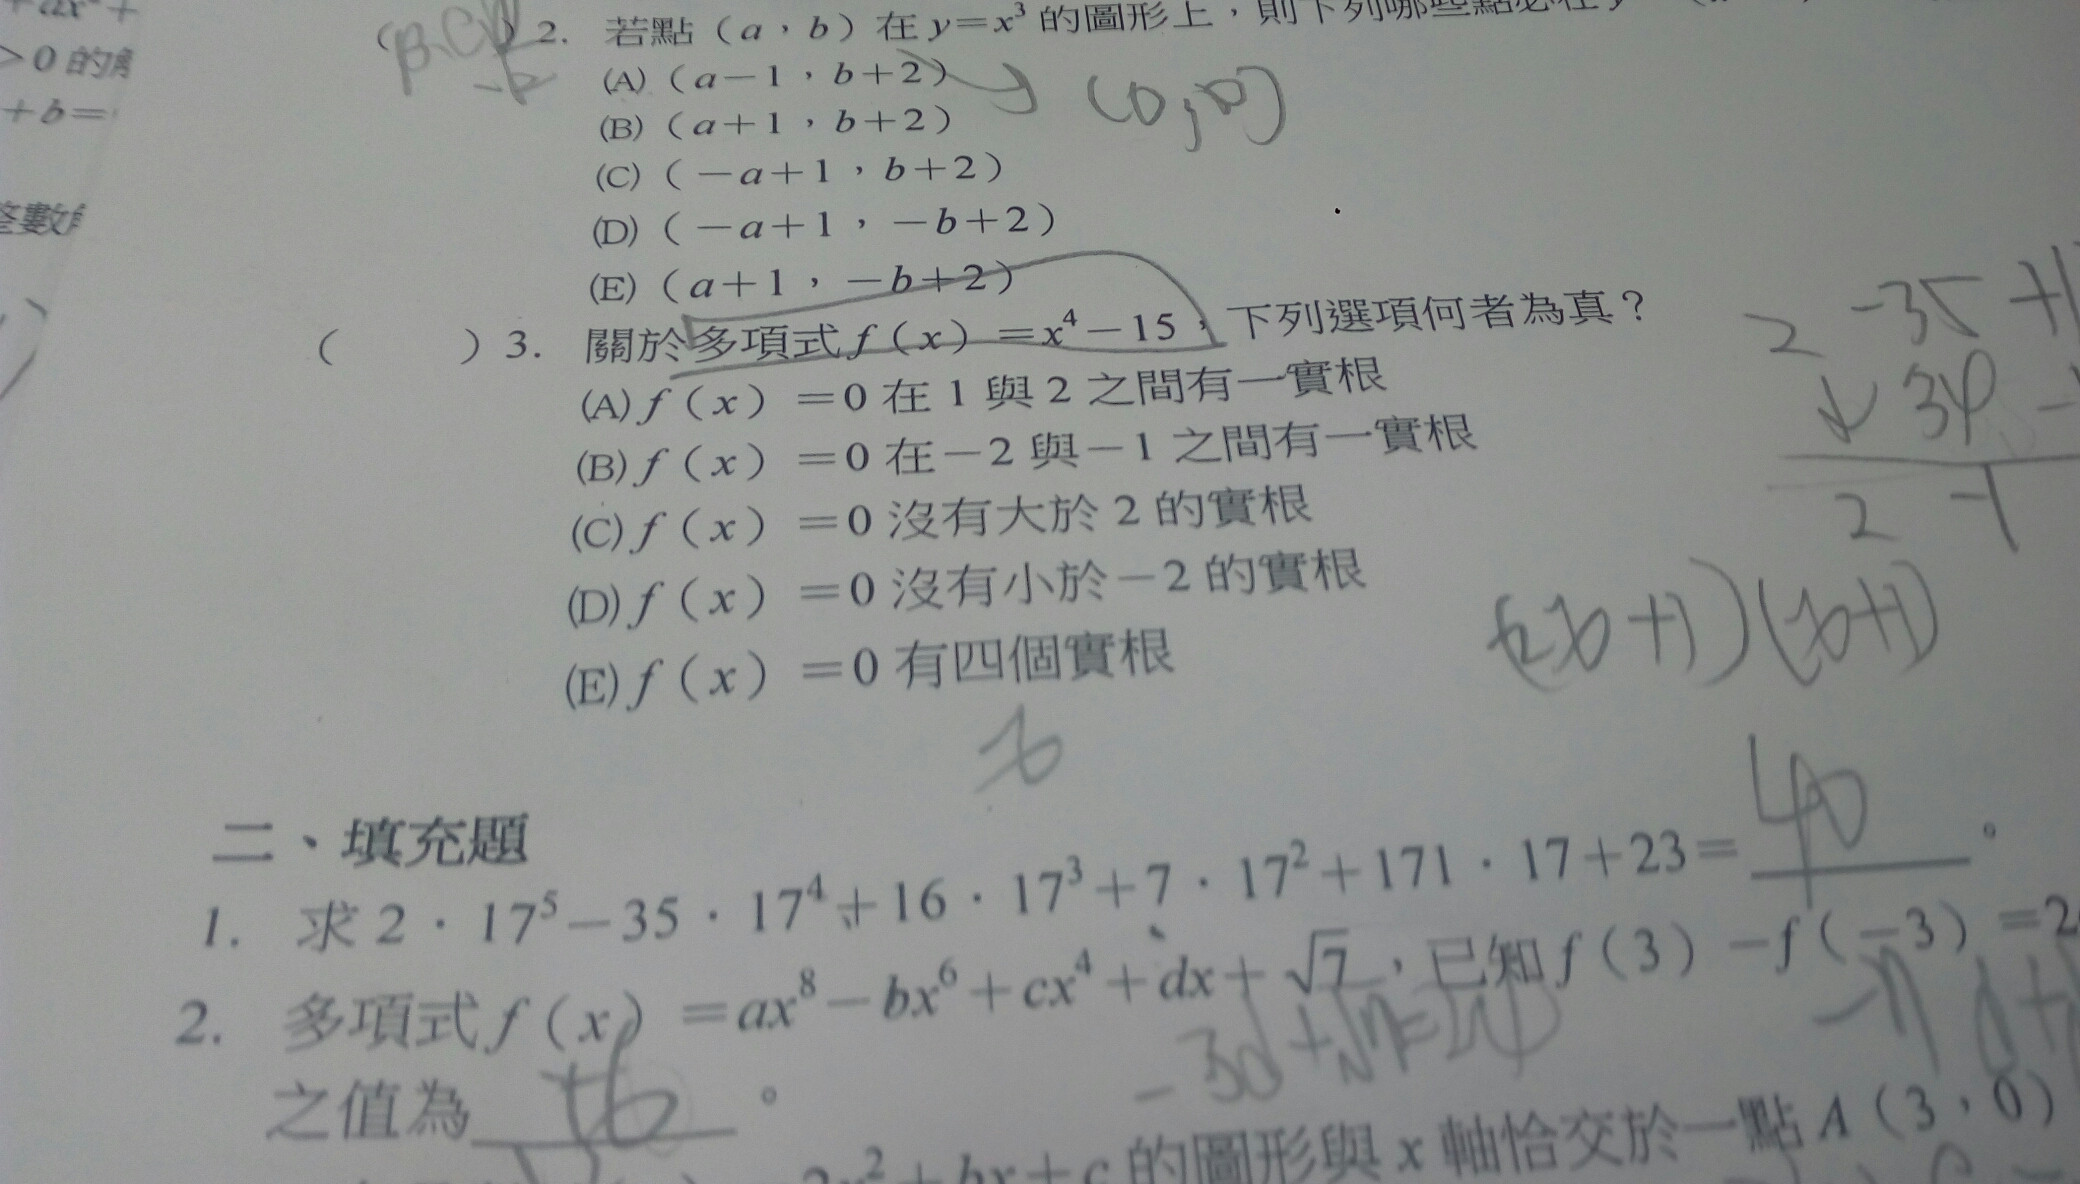 >0 的
+b=
整數
2. 若點（a，b）在 y=x³ 的圖形上，則下列哪些點必在
(A)（a－1，b＋2）
(0,0)
(B)（a＋1，b＋2）
(C)（－a＋1，b＋2）
(D)（－a＋1，－b＋2）
(E)（a＋1，－b＋2）
（ ）3. 關於多項式 f（x）=x⁴－15，下列選項何者為真？
(A) f（x）=0 在 1 與 2 之間有一實根
(B) f（x）=0 在－2 與－1 之間有一實根
(C) f（x）=0 沒有大於 2 的實根
(D) f（x）=0 沒有小於－2 的實根
(E) f（x）=0 有四個實根
2 -35 +1
34 -
2 -1
(2x+1)(x+1)
x
二、填充題
1. 求 2．17⁵－35．17⁴＋16．17³＋7．17²＋171．17＋23= 40 。
2. 多項式 f（x）=ax⁸－bx⁶＋cx⁴＋dx＋√7，已知 f（3）－f（－3）=2
之值為 +6 。
2x²＋bx＋c 的圖形與 x 軸恰交於一點 A（3，0）